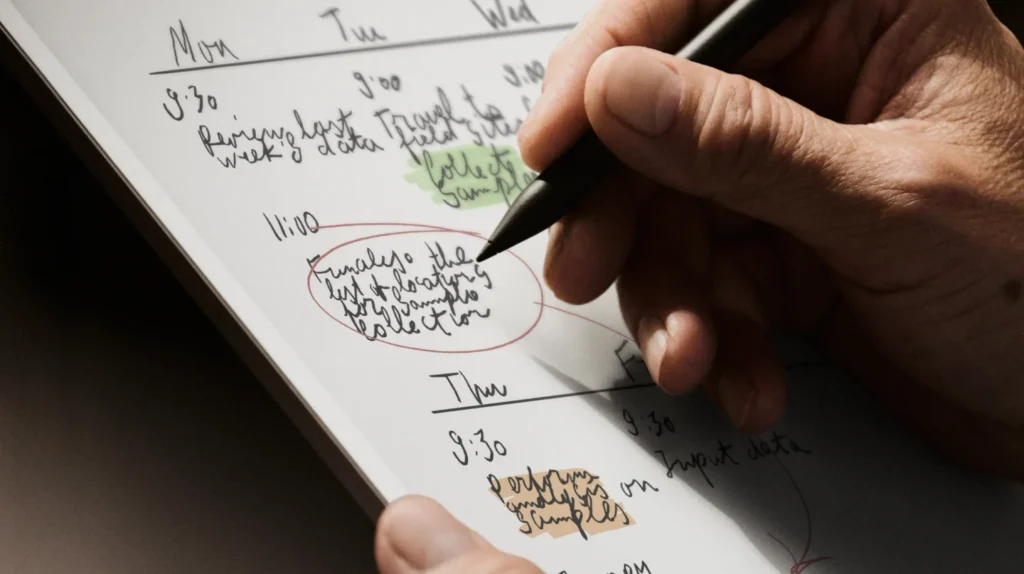 Mon Tue Wed
9:30
Review last
week's data
9:00
Travel to
field sites
Collect
samples
9:00
11:00
Finalize the
list & locations
for sample
collection
Thu
9:30
Perform
analysis on
samples
9:30
Input data
PM